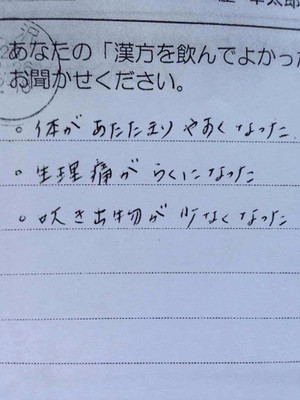 幸太郎
あなたの「漢方を飲んでよかった
お聞かせください。
。体があたたまりやすくなった
。生理痛がらくになった
。吹き出物が少なくなった